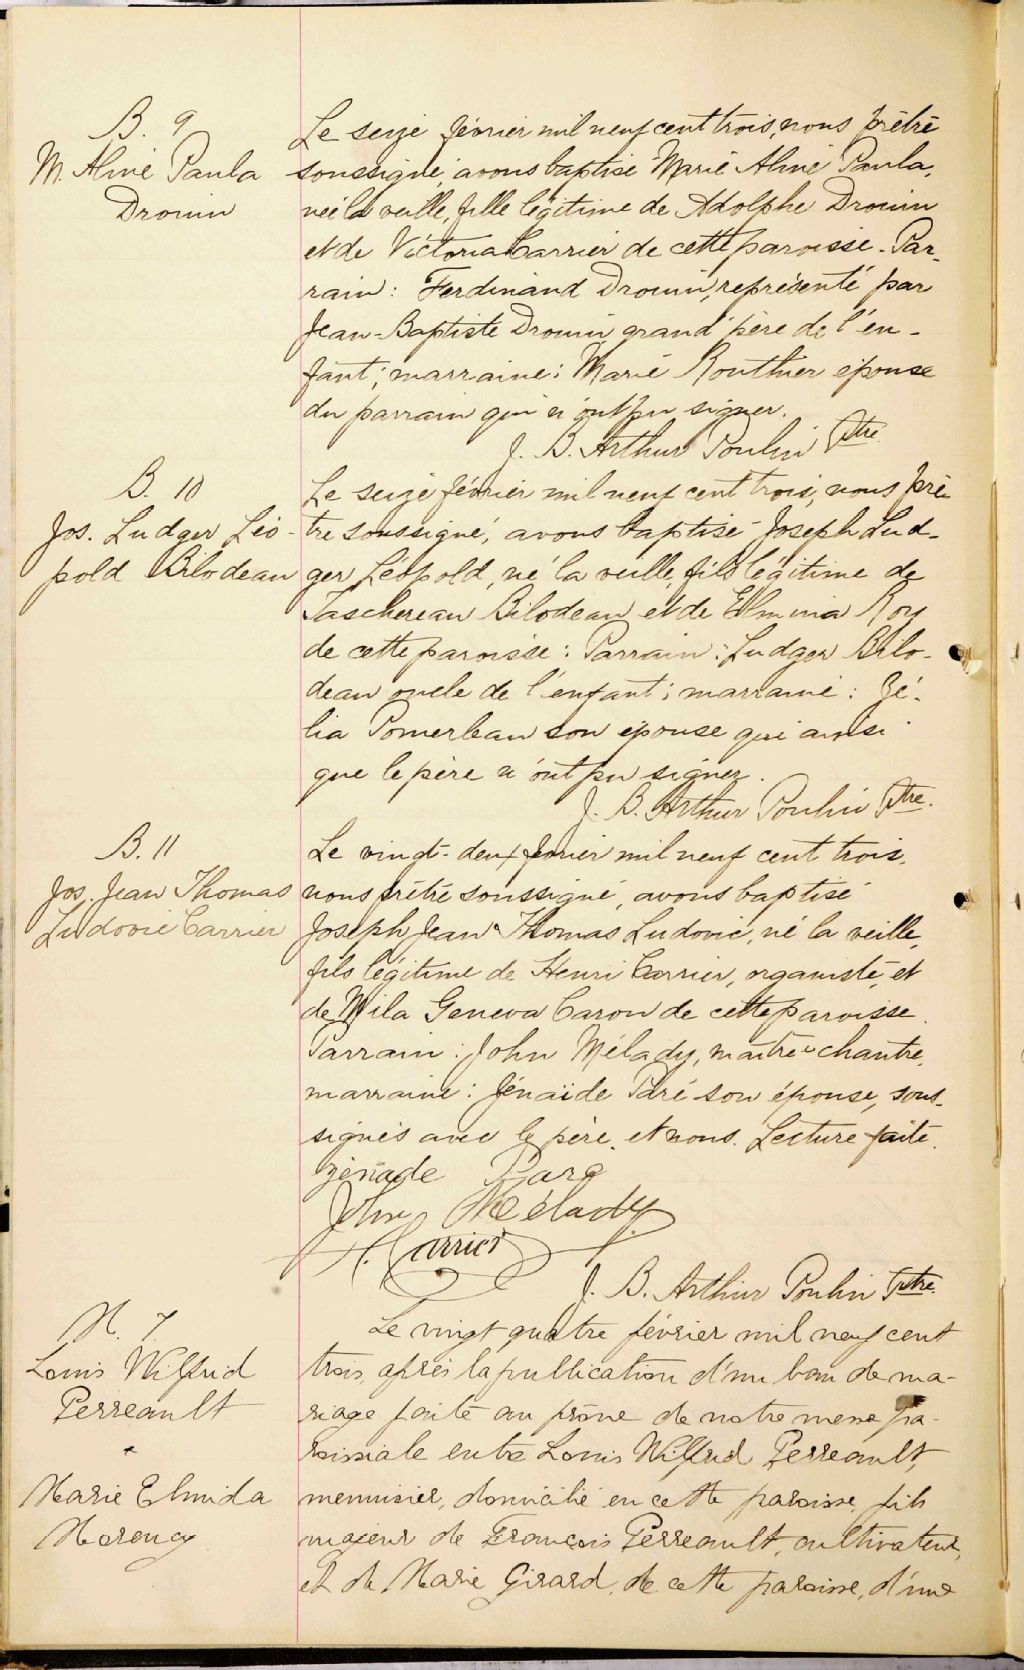 B. 9
M. Aline Paula
Drouin
Le seize février mil neuf cent trois, nous prêtre
soussigné, avons baptisé Marie Aline Paula,
née la veille, fille légitime de Adolphe Drouin
et de Victoria Carrier de cette paroisse - Par-
rain : Ferdinand Drouin, représenté par
Jean-Baptiste Drouin grand' père de l'en-
fant ; marraine : Marie Routhier épouse
du parrain qui n'ont pu signer.
J. B. Arthur Poulin Ptre
B. 10
Jos. Ludger Léo-
pold Bilodeau
Le seize février mil neuf cent trois, nous prê-
tre soussigné, avons baptisé Joseph Lud-
ger Léopold, né la veille, fils légitime de
Taschereau Bilodeau et de Elmina Roy
de cette paroisse : Parrain : Ludger Bilo-
deau oncle de l'enfant ; marraine : Zé-
lia Pomerleau son épouse qui ainsi
que le père n'ont pu signer.
J. B. Arthur Poulin Ptre.
B. 11
Jos. Jean Thomas
Ludovic Carrier
Le vingt-deux février mil neuf cent trois,
nous prêtre soussigné, avons baptisé
Joseph Jean Thomas Ludovic, né la veille,
fils légitime de Henri Carrier, organiste, et
de Mila Geneva Caron de cette paroisse.
Parrain : John Mélady, maître-chantre,
marraine : Zénaïde Paré son épouse, sous-
signés avec le père, et nous. Lecture faite.
Zénaïde Paré
John Mélady
H. Carrier
J. B. Arthur Poulin Ptre.
M. 7
Louis Wilfrid
Perreault
+
Marie Elmida
Morency
Le vingt quatre février mil neuf cent
trois, après la publication d'un ban de ma-
riage faite au prône de notre messe pa-
roissiale entre Louis Wilfrid Perreault,
menuisier, domicilié en cette paroisse, fils
majeur de François Perreault, cultivateur,
et de Marie Girard, de cette paroisse, d'une